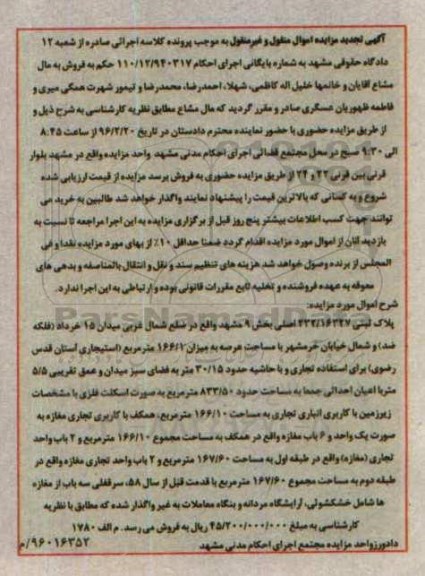 آگهی تجدید مزایده اموال منقول و غیرمنقول به موجب پرونده کلاسه اجرائی صادره از شعبه ۱۲
دادگاه حقوقی مشهد به شماره بایگانی اجرای احکام ۱۱۰/۱۲/۹۴۰۳۱۷ حکم به فروش به مال
مشاع آقایان و خانمها خلیل اله کاظمی، شهلا، احمدرضا، محمدرضا و تیمور شهرت همگی میری و
فاطمه ظهوریان عسگری صادر و مقرر گردید که مال مشاع مطابق نظریه کارشناسی به شرح ذیل و
از طریق مزایده حضوری با حضور نماینده محترم دادستان در تاریخ ۹۶/۲/۲۰ از ساعت ۸:۴۵
الی ۹:۳۰ صبح در محل مجتمع قضائی اجرای احکام مدنی مشهد واحد مزایده واقع در مشهد بلوار
قرنی بین قرنی ۲۲ و ۲۴ از طریق مزایده حضوری به فروش برسد مزایده از قیمت ارزیابی شده
شروع و به کسانی که بالاترین قیمت را پیشنهاد نمایند واگذار خواهد شد طالبین به خرید می
توانند جهت کسب اطلاعات بیشتر پنج روز قبل از برگزاری مزایده به این اجرا مراجعه تا نسبت به
بازدید آنان از اموال مورد مزایده اقدام گردد ضمنا حداقل ۱۰٪ از بهای مورد مزایده نقدا و فی
المجلس از برنده وصول خواهد شد هزینه های تنظیم سند و نقل و انتقال بالمناصفه و بدهی های
معوقه به عهده فروشنده و تخلیه تابع مقررات قانونی بوده و ارتباطی به این اجرا ندارد.
شرح اموال مورد مزایده:
پلاک ثبتی ۴۳۲/۱۶۳۲۷ اصلی بخش ۹ مشهد واقع در ضلع شمال غربی میدان ۱۵ خرداد (فلکه
ضد) و شمال خیابان خرمشهر با مساحت عرصه به میزان ۱۶۶/۱ مترمربع (استیجاری آستان قدس
رضوی) برای استفاده تجاری و با حاشیه حدود ۳۰/۱۵ متر به فضای سبز میدان و عمق تقریبی ۵/۵
متر با اعیان احداثی جمعا به مساحت حدود ۸۳۳/۵۰ مترمربع به صورت اسکلت فلزی با مشخصات
زیرزمین با کاربری انباری تجاری به مساحت ۱۶۶/۱۰ مترمربع، همکف با کاربری تجاری مغازه به
صورت یک واحد و ۶ باب مغازه واقع در همکف به مساحت مجموع ۱۶۶/۱۰ مترمربع و ۲ باب واحد
تجاری (مغازه) واقع در طبقه اول به مساحت ۱۶۷/۶۰ مترمربع و ۲ باب واحد تجاری مغازه واقع در
طبقه دوم به مساحت مجموع ۱۶۷/۶۰ مترمربع با قدمت قبل از سال ۵۸، سرقفلی سه باب از مغازه
ها شامل خشکشوئی، آرایشگاه مردانه و بنگاه معاملات به غیر واگذار شده که مطابق با نظریه
کارشناسی به مبلغ ۴۵/۲۰۰/۰۰۰/۰۰۰ ریال به فروش می رسد. م الف ۱۷۸۰
دادورز واحد مزایده مجتمع اجرای احکام مدنی مشهد
۹۶۰۱۶۳۵۲/م
ParsNamadData